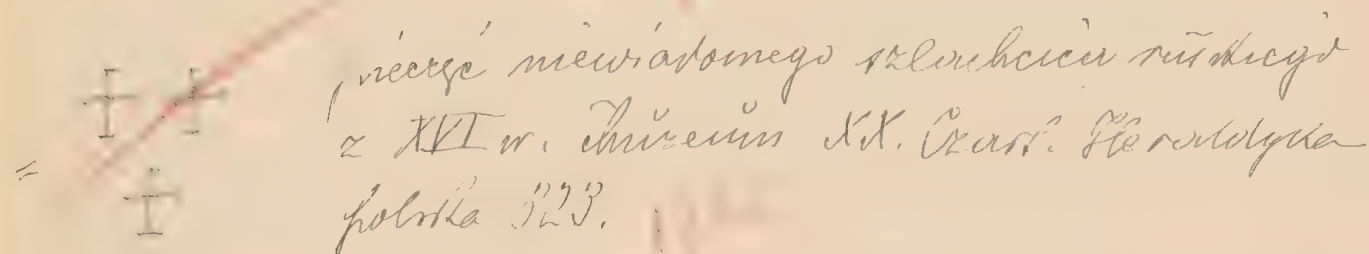 pieczęć niewiadomego szlachcica ruskiego
z XVI w. Muzeum XX. Czart. Heraldyka
polska 323.